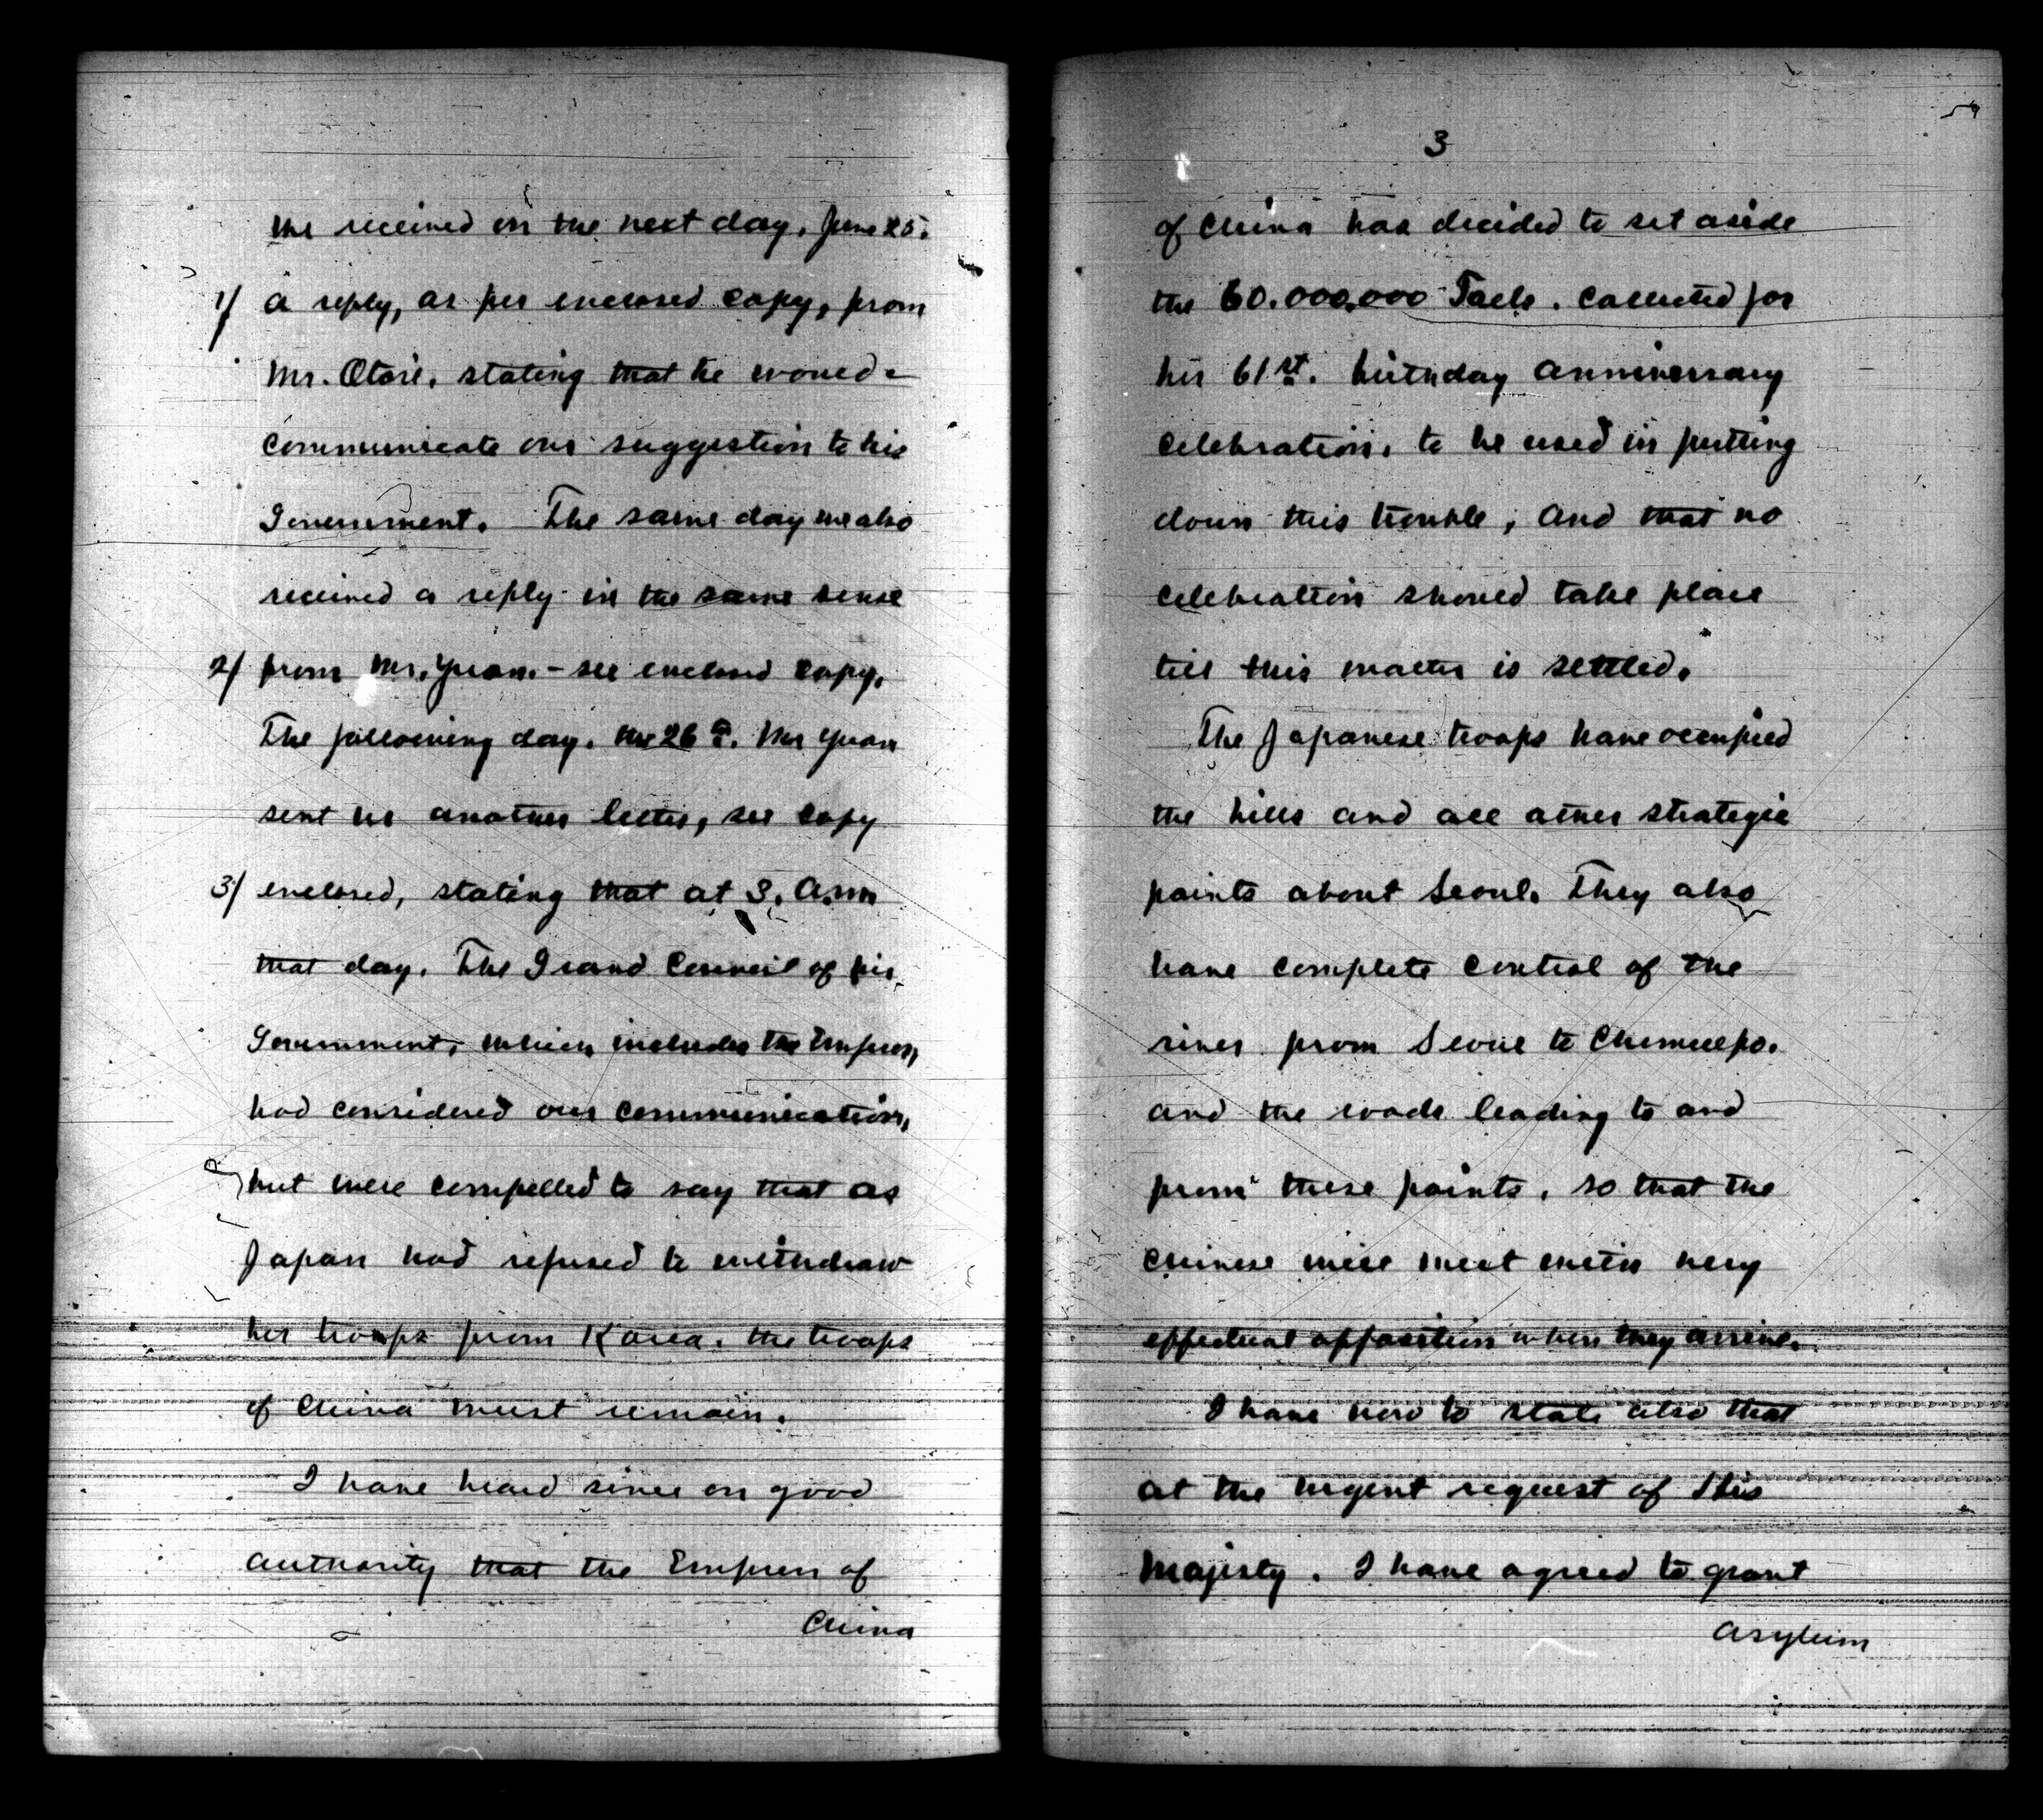 we received on the next day, June 25.
1/ a reply, as per enclosed copy, from
Mr. Otori, stating that he would
communicate our suggestion to his
Government. The same day we also
received a reply in the same sense
2/ from Mr. Yuan. - see enclosed copy.
The following day, the 26th. Mr Yuan
sent us another letter, see copy
3/ enclosed, stating that at 3. a.m
that day, The Grand Council of his
Government, which includes the Empress,
had considered our communication,
but were compelled to say that as
Japan had refused to withdraw
her troops from Korea, the troops
of China must remain.
I have heard since on good
authority that the Empress of
China
3
of China has decided to set aside
the 60.000,000 Taels. collected for
her 61st. birthday anniversary
celebration, to be used in putting
down this trouble, and that no
celebration should take place
till this matter is settled.
The Japanese troops have occupied
the hills and all other strategic
points about Seoul. They also
have complete control of the
river from Seoul to Chemulpo.
and the roads leading to and
from these points, so that the
Chinese will meet with very
effectual opposition when they arrive.
I have now to state also that
at the urgent request of His
Majesty. I have agreed to grant
asylum